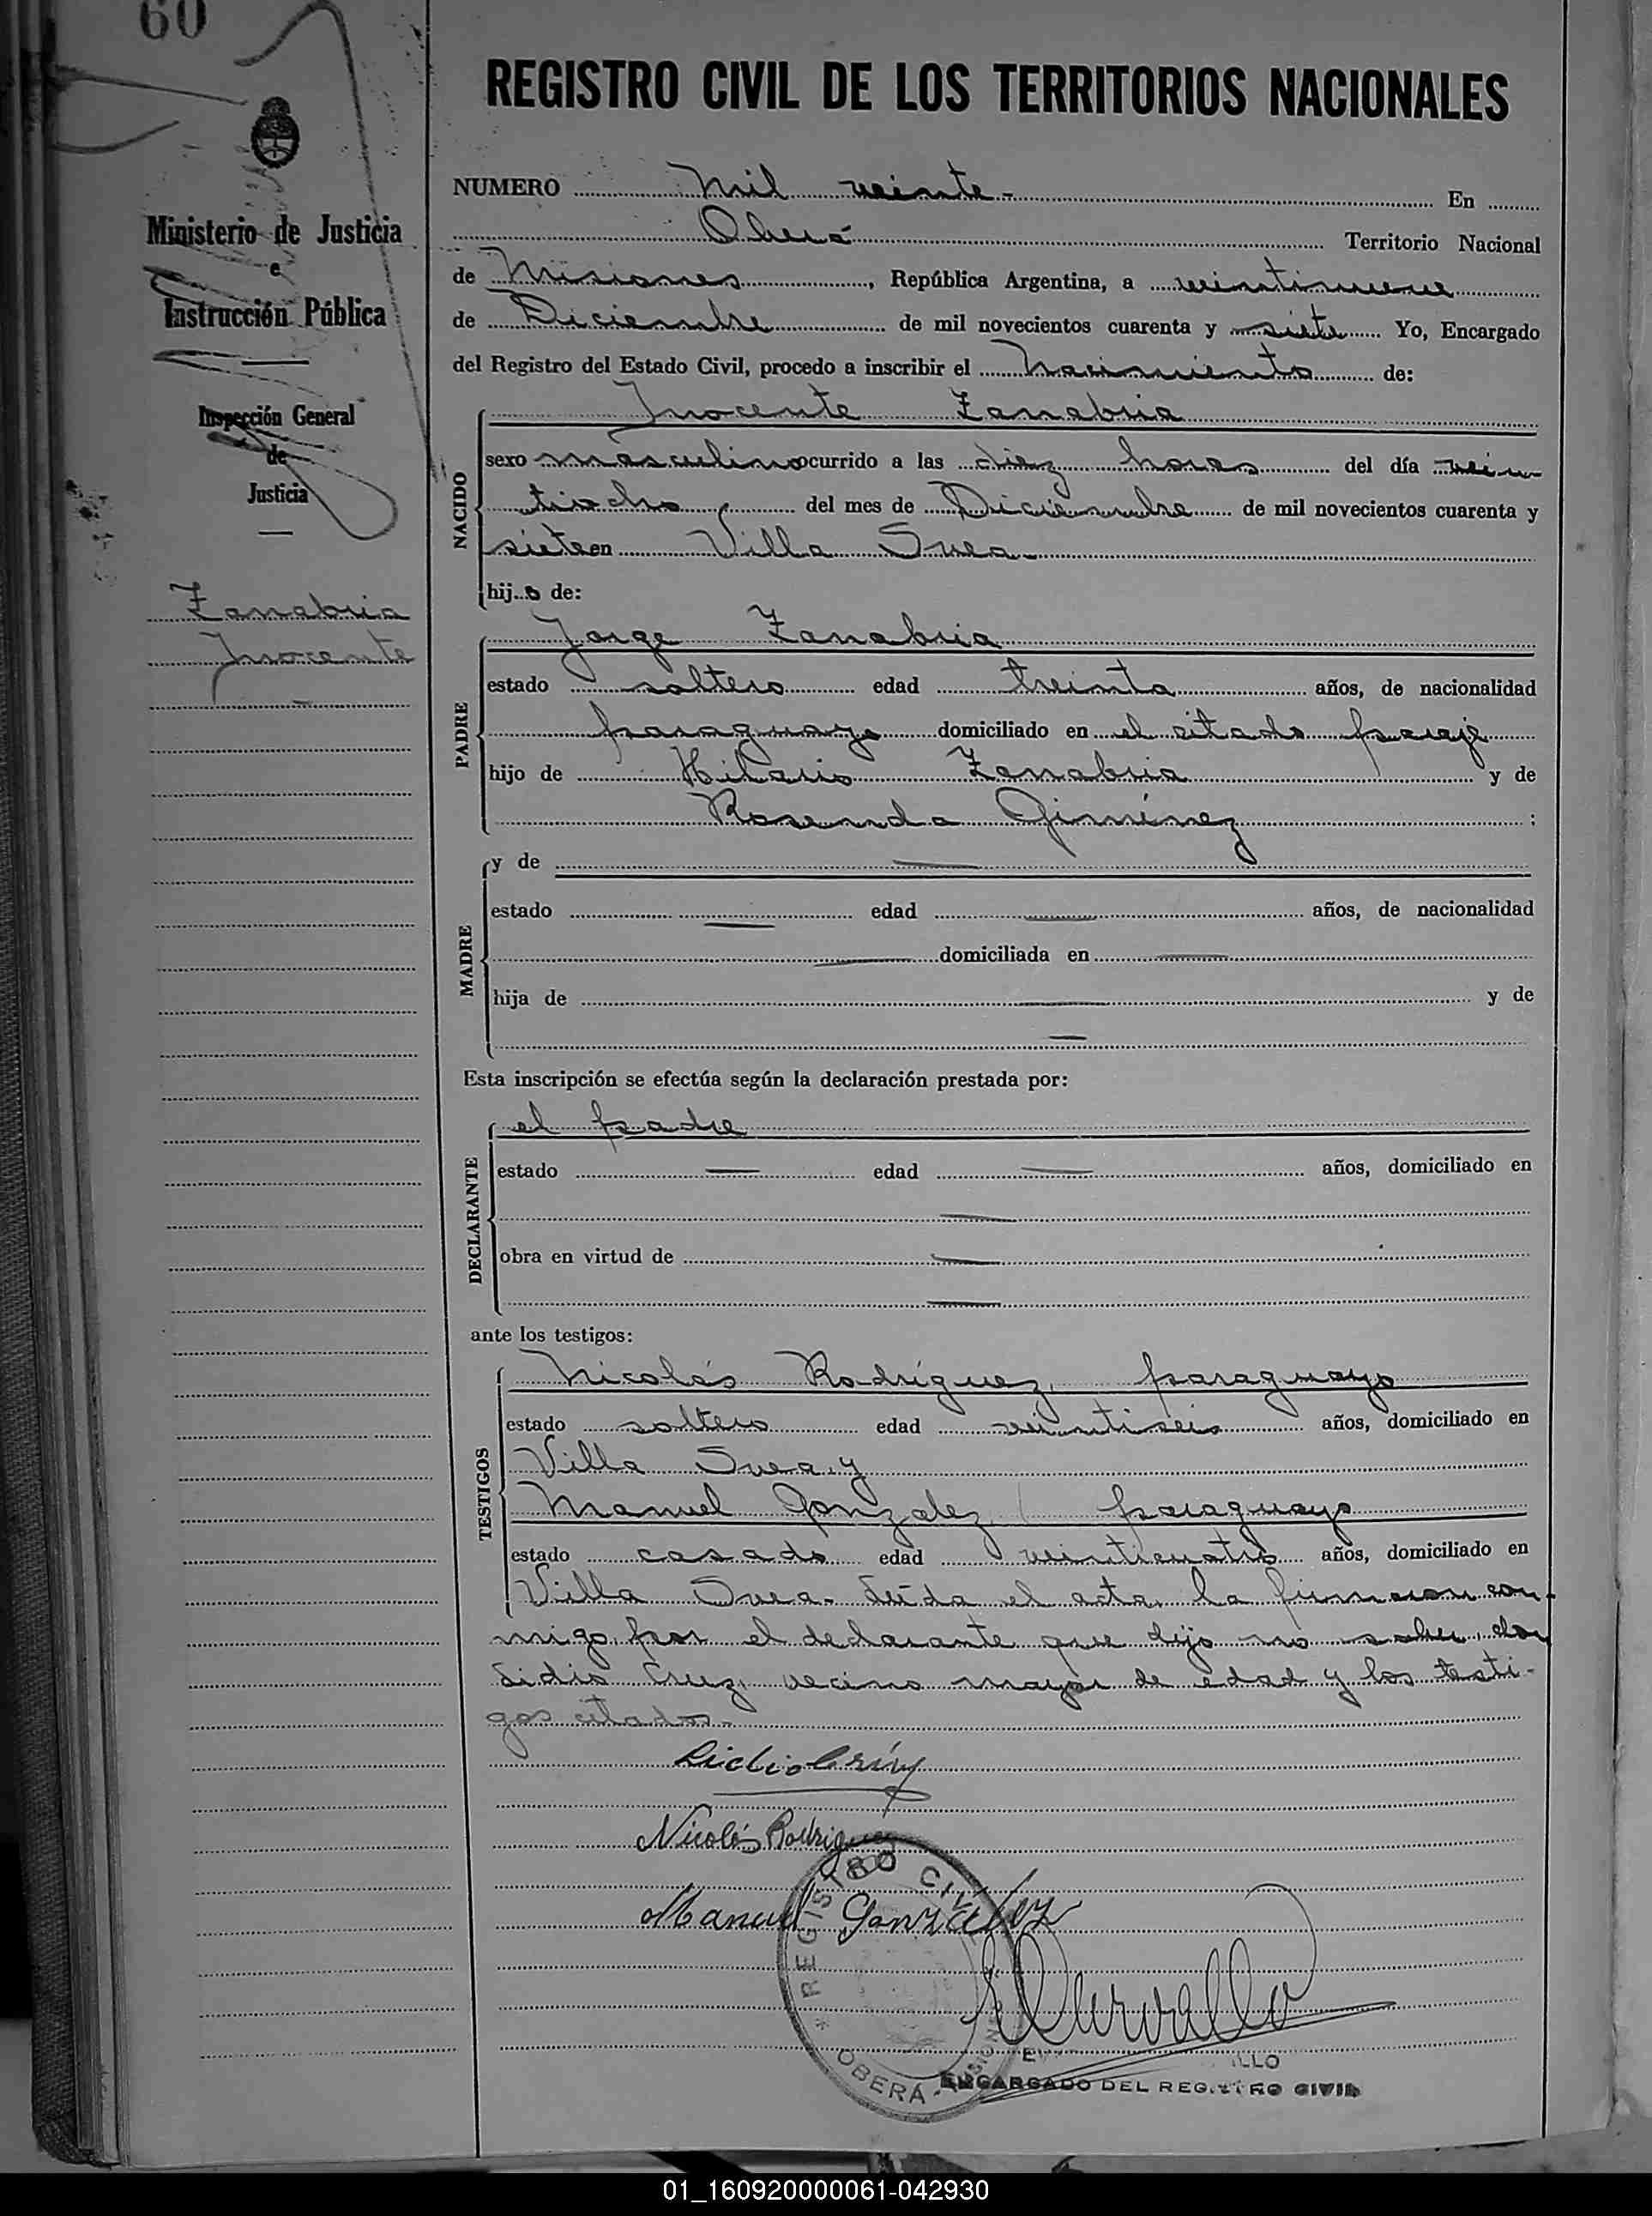 60
REGISTRO CIVIL DE LOS TERRITORIOS NACIONALES
Ministerio de Justicia
e
Instrucción Pública
Inspección General
de
Justicia
Zanabria
Inocente
NUMERO Mil veinte.- En
Oberá Territorio Nacional
de Misiones, República Argentina, a veintinueve
de Diciembre de mil novecientos cuarenta y siete Yo, Encargado
del Registro del Estado Civil, procedo a inscribir el nacimiento de:
NACIDO
Inocente Zanabria
sexo masculino ocurrido a las diez horas del día vein
tiocho del mes de Diciembre de mil novecientos cuarenta y
siete en Villa Svea.
hijo de:
PADRE
Jorge Zanabria
estado soltero edad treinta años, de nacionalidad
paraguayo domiciliado en el citado paraje
hijo de Hilario Zanabria y de
Rosenda Giménez ;
MADRE
y de —
estado — edad — años, de nacionalidad
— domiciliada en —
hija de — y de
—
Esta inscripción se efectúa según la declaración prestada por:
DECLARANTE
el padre
estado — edad — años, domiciliado en
—
obra en virtud de —
—
ante los testigos:
TESTIGOS
Nicolás Rodríguez, paraguayo
estado soltero edad veintiseis años, domiciliado en
Villa Svea y
Manuel Gonzalez, paraguayo
estado casado edad veinticuatro años, domiciliado en
Villa Svea. Leída el acta, la firmaron con
migo, por el declarante que dijo no saber, don
Lidio Cruz, vecino mayor de edad y los testi-
gos citados.-
Lidio Crúz
Nicolás Rodriguez
Manuel González
REGISTRO CIVIL
OBERÁ - MISIONES
ENCARGADO DEL REGISTRO CIVIL
01_160920000061-042930